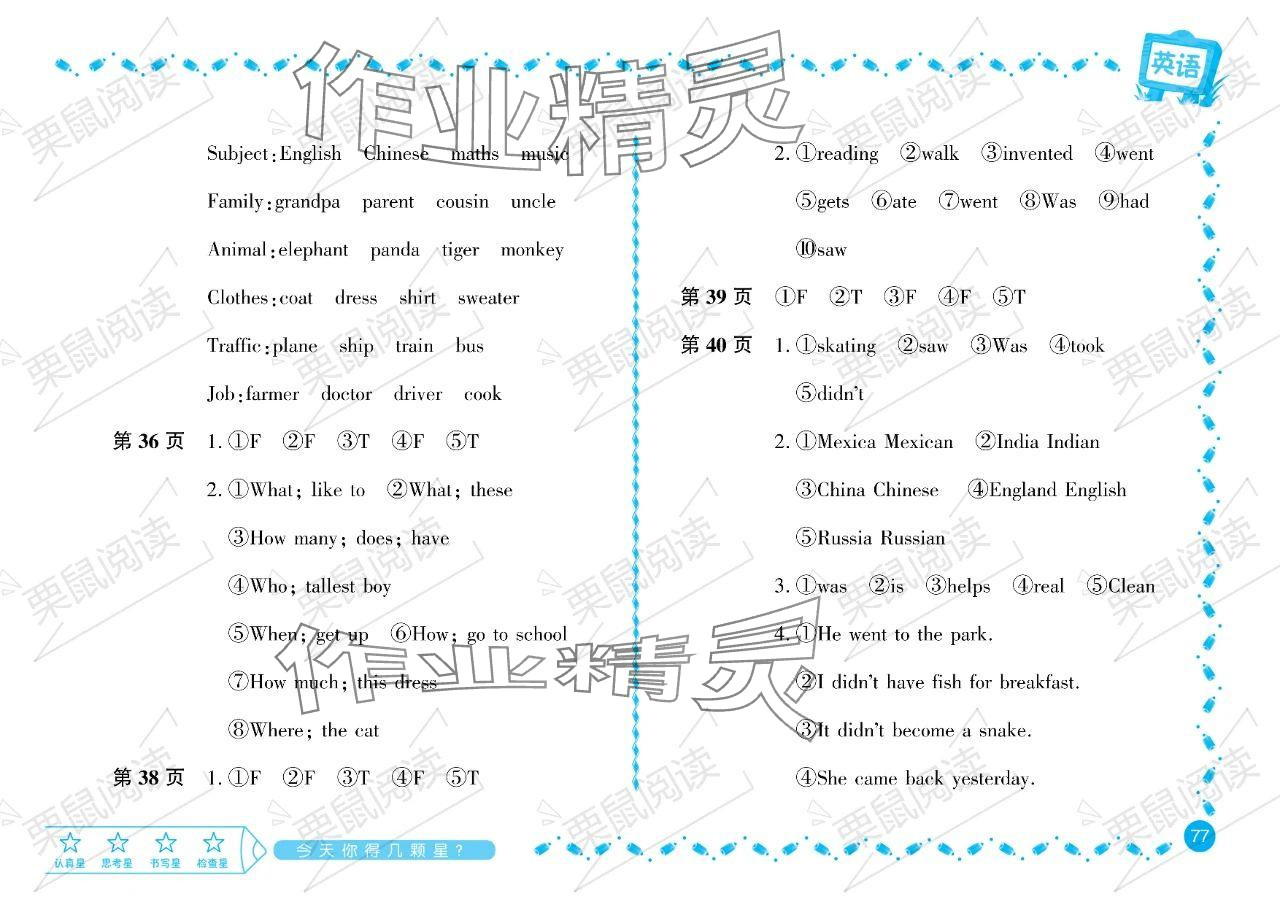 英语
Subject:English Chinese maths music
Family:grandpa parent cousin uncle
Animal:elephant panda tiger monkey
Clothes:coat dress shirt sweater
Traffic:plane ship train bus
Job:farmer doctor driver cook
第 36 页 1. ①F ②F ③T ④F ⑤T
2. ①What; like to ②What; these
③How many; does; have
④Who; tallest boy
⑤When; get up ⑥How; go to school
⑦How much; this dress
⑧Where; the cat
第 38 页 1. ①F ②F ③T ④F ⑤T
2. ①reading ②walk ③invented ④went
⑤gets ⑥ate ⑦went ⑧Was ⑨had
⑩saw
第 39 页 ①F ②T ③F ④F ⑤T
第 40 页 1. ①skating ②saw ③Was ④took
⑤didn't
2. ①Mexica Mexican ②India Indian
③China Chinese ④England English
⑤Russia Russian
3. ①was ②is ③helps ④real ⑤Clean
4. ①He went to the park.
②I didn't have fish for breakfast.
③It didn't become a snake.
④She came back yesterday.
认真星 思考星 书写星 检查星
今天你得几颗星?
77
作业精灵
作业精灵
栗鼠阅读